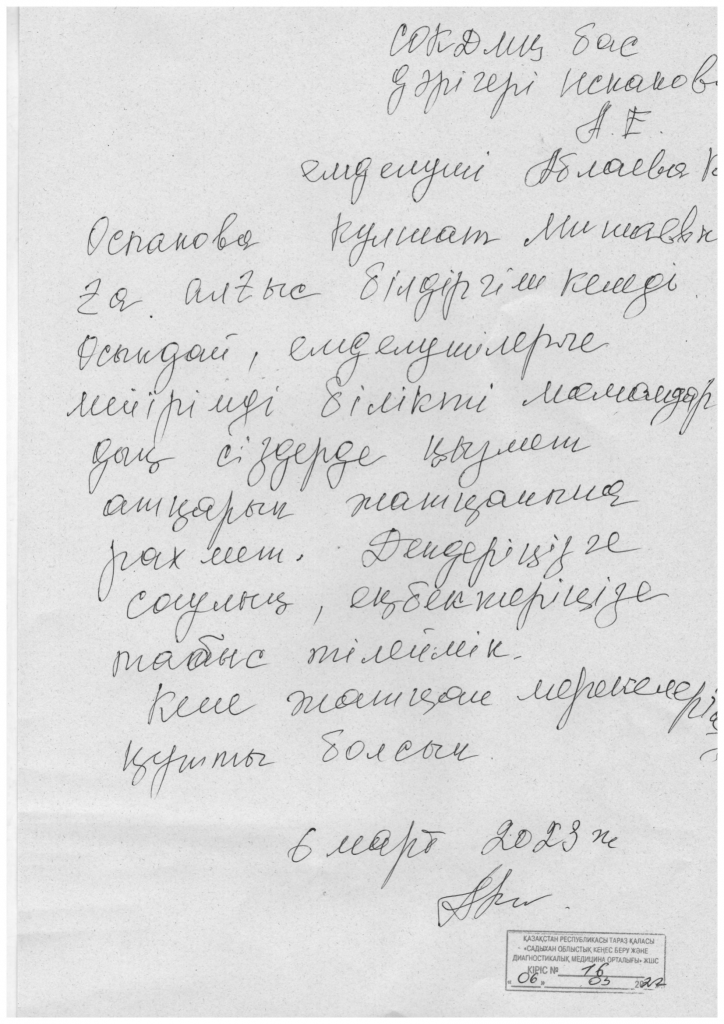 СОКДМЦ бас
дәрігері Испанов
А.Е.
емделуші Аблаева К
Оспанова Кулшат Мишаевн
ға алғыс білдіргім келеді
Осындай, емделушілерге
мейірімді білікті мамандар
дың сіздерде қызмет
атқарып жатқанына
рахмет. Дендеріңізге
саулық, еңбектеріңізге
табыс тілеймік.
Келе жатқан мерекелерің
құтты болсын
6 март 2023 ж
ҚАЗАҚСТАН РЕСПУБЛИКАСЫ ТАРАЗ ҚАЛАСЫ
«САДЫХАН ОБЛЫСТЫҚ КЕҢЕС БЕРУ ЖӘНЕ
ДИАГНОСТИКАЛЫҚ МЕДИЦИНА ОРТАЛЫҒЫ» ЖШС
КІРІС № 16
«06» 03 2022